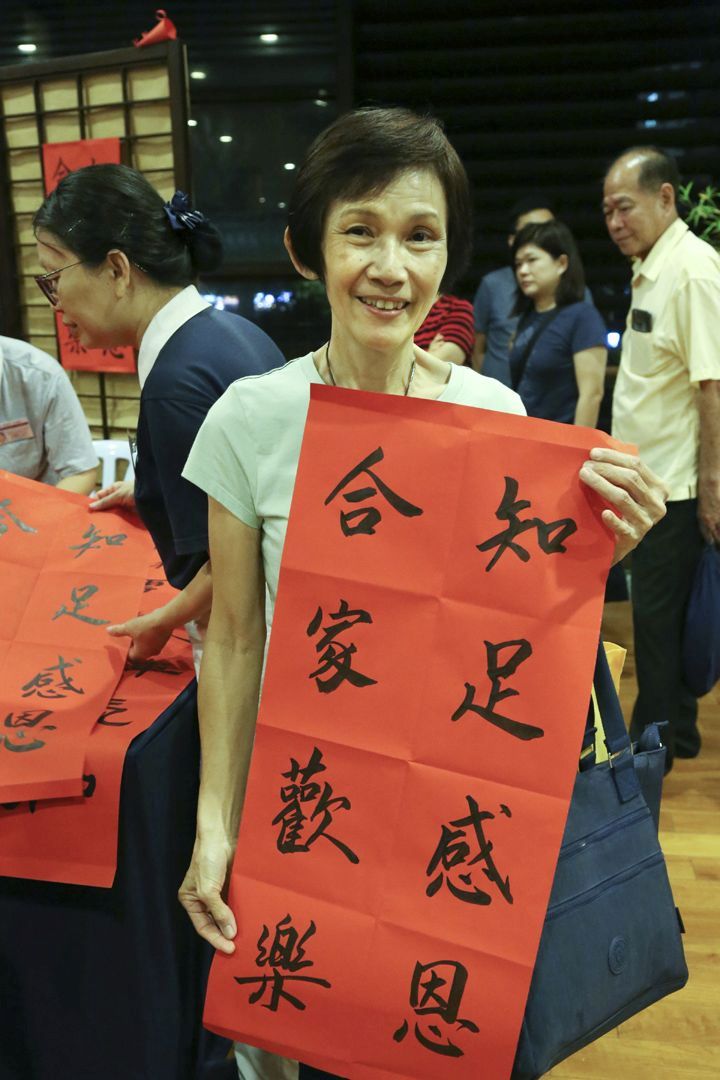 知足感恩
合家歡樂
知足感恩
合